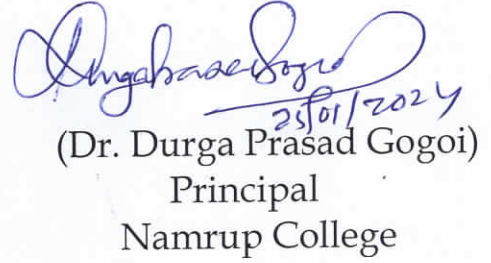 Durga Prasad Gogoi
25/01/2024
(Dr. Durga Prasad Gogoi)
Principal
Namrup College